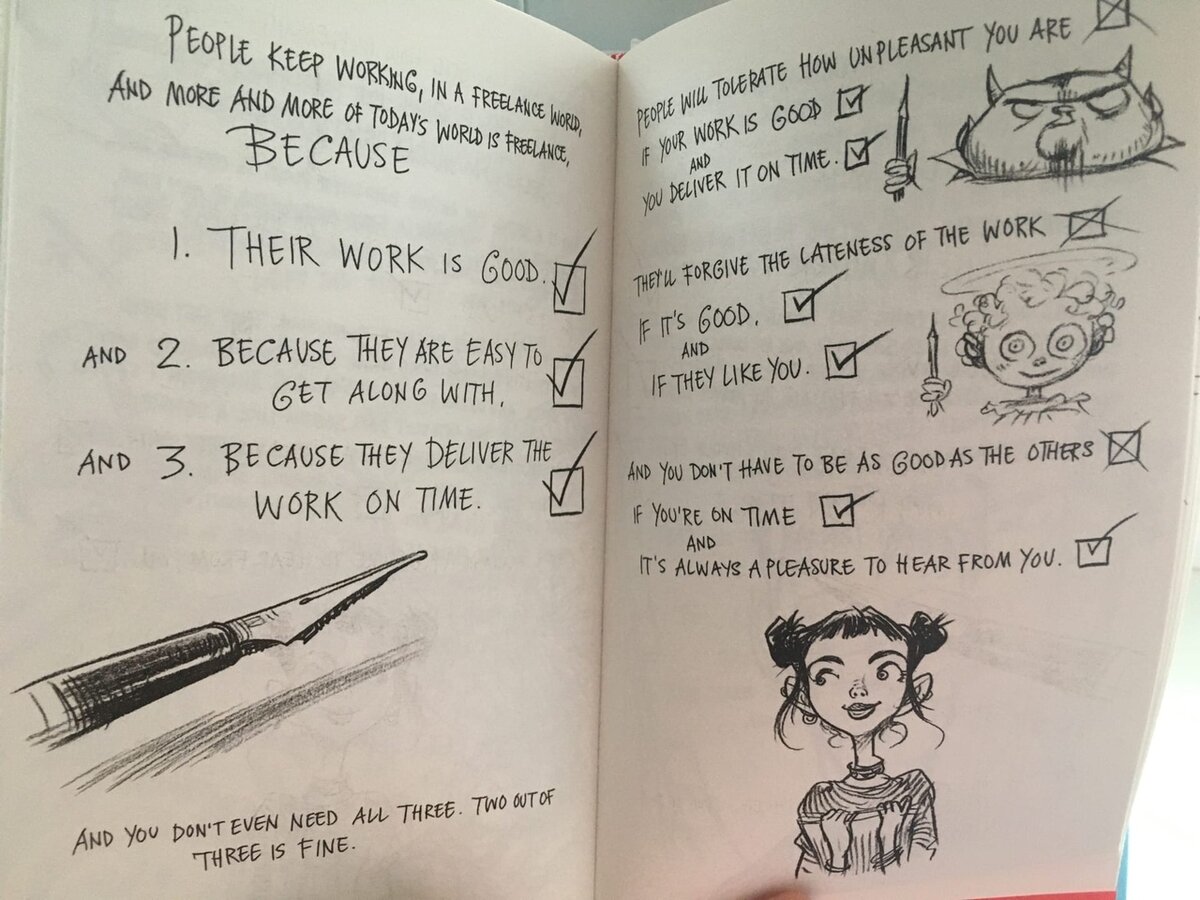 PEOPLE KEEP WORKING, IN A FREELANCE WORLD,
AND MORE AND MORE OF TODAY'S WORLD IS FREELANCE,
BECAUSE
1. THEIR WORK IS GOOD.
AND 2. BECAUSE THEY ARE EASY TO
GET ALONG WITH.
AND 3. BECAUSE THEY DELIVER THE
WORK ON TIME.
AND YOU DON'T EVEN NEED ALL THREE. TWO OUT OF
THREE IS FINE.
PEOPLE WILL TOLERATE HOW UNPLEASANT YOU ARE
IF YOUR WORK IS GOOD
AND
YOU DELIVER IT ON TIME.
THEY'LL FORGIVE THE LATENESS OF THE WORK
IF IT'S GOOD.
AND
IF THEY LIKE YOU.
AND YOU DON'T HAVE TO BE AS GOOD AS THE OTHERS
IF YOU'RE ON TIME
AND
IT'S ALWAYS A PLEASURE TO HEAR FROM YOU.